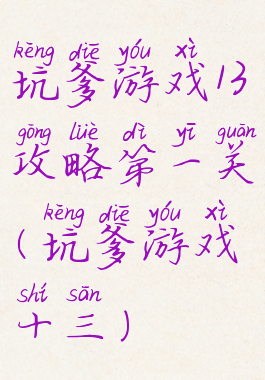 kēng diē yóu xì
坑爹游戏13
gōng lüè dì yī guān
攻略第一关
kēng diē yóu xì
(坑爹游戏
shí sān
十三)